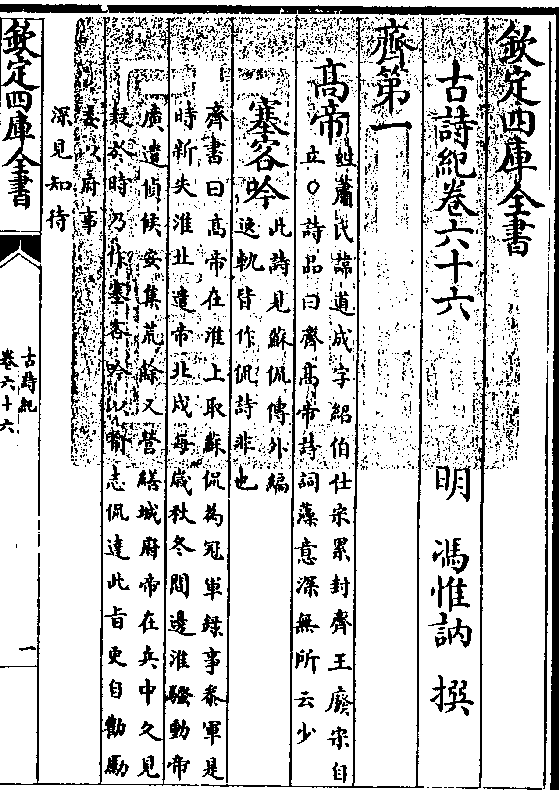 欽定四庫全書
古詩紀卷六十六
明 馮惟訥 撰
齊第一
高帝
姓蕭氏諱道成字紹伯仕宋累封齊王廢宋自
立〇詩品曰齊高帝詩詞藻意深無所云少
塞客吟
此詩見蘇侃傳外編
逸軌皆作侃詩非也
齊書曰高帝在淮上取蘇侃為冠軍錄事參軍是
時新失淮北遣帝北戍每歳秋冬間邊淮騷動帝
廣遣偵候安集荒餘又營繕城府帝在兵中久見
疑於時乃作塞客吟以喻志侃達此旨更自勸勵
委以府事
深見知待
欽定四庫全書
古詩紀
卷六十六
一